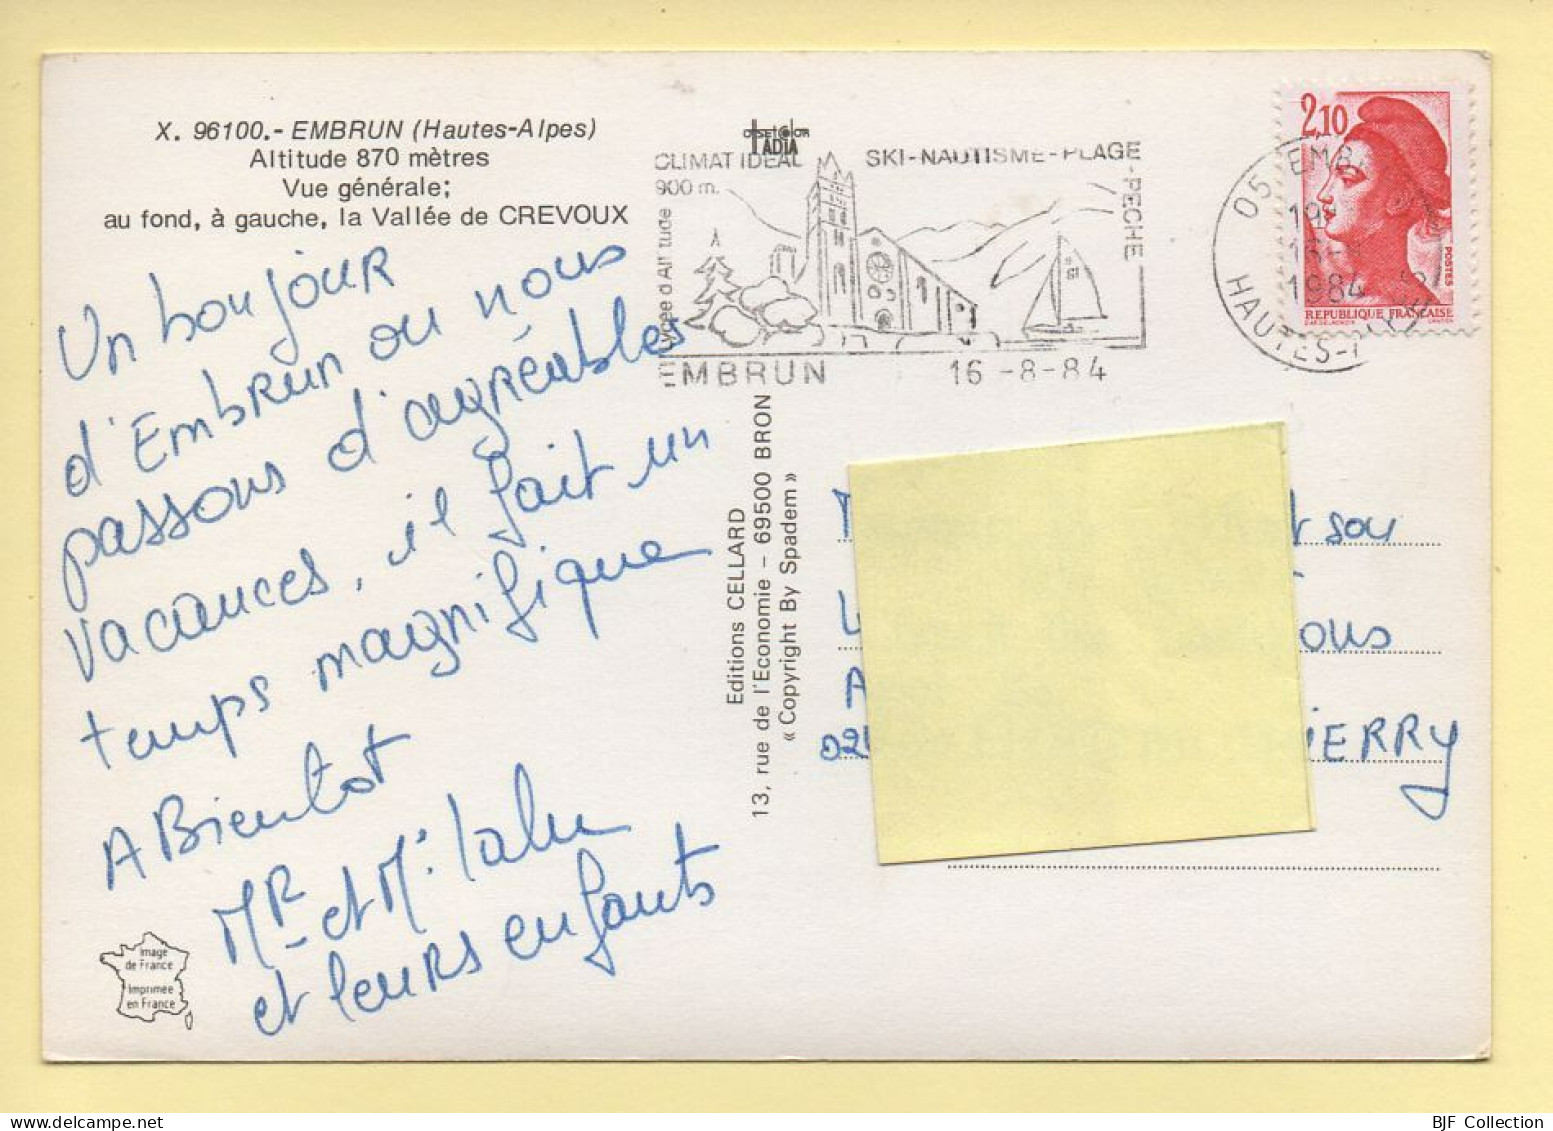 X. 96100.- EMBRUN (Hautes-Alpes)
Altitude 870 mètres
Vue générale;
au fond, à gauche, la Vallée de CREVOUX
Un bonjour
d'Embrun ou nous
passons d'agréables
vacances, il fait un
temps magnifique
A Bientot
Mr et Me
et leurs enfants
Image
de France
Imprimée
en France
TADIA
CLIMAT IDEAL
900 m.
SKI-NAUTISME-PLAGE
-PECHE
Lycée d'Altitude
EMBRUN 16-8-84
Editions CELLARD
13, rue de l'Economie – 69500 BRON
« Copyright By Spadem »
2,10
POSTES
REPUBLIQUE FRANÇAISE
05 EMB
1984
HAUTES-
ous
IERRY
BJF Collection